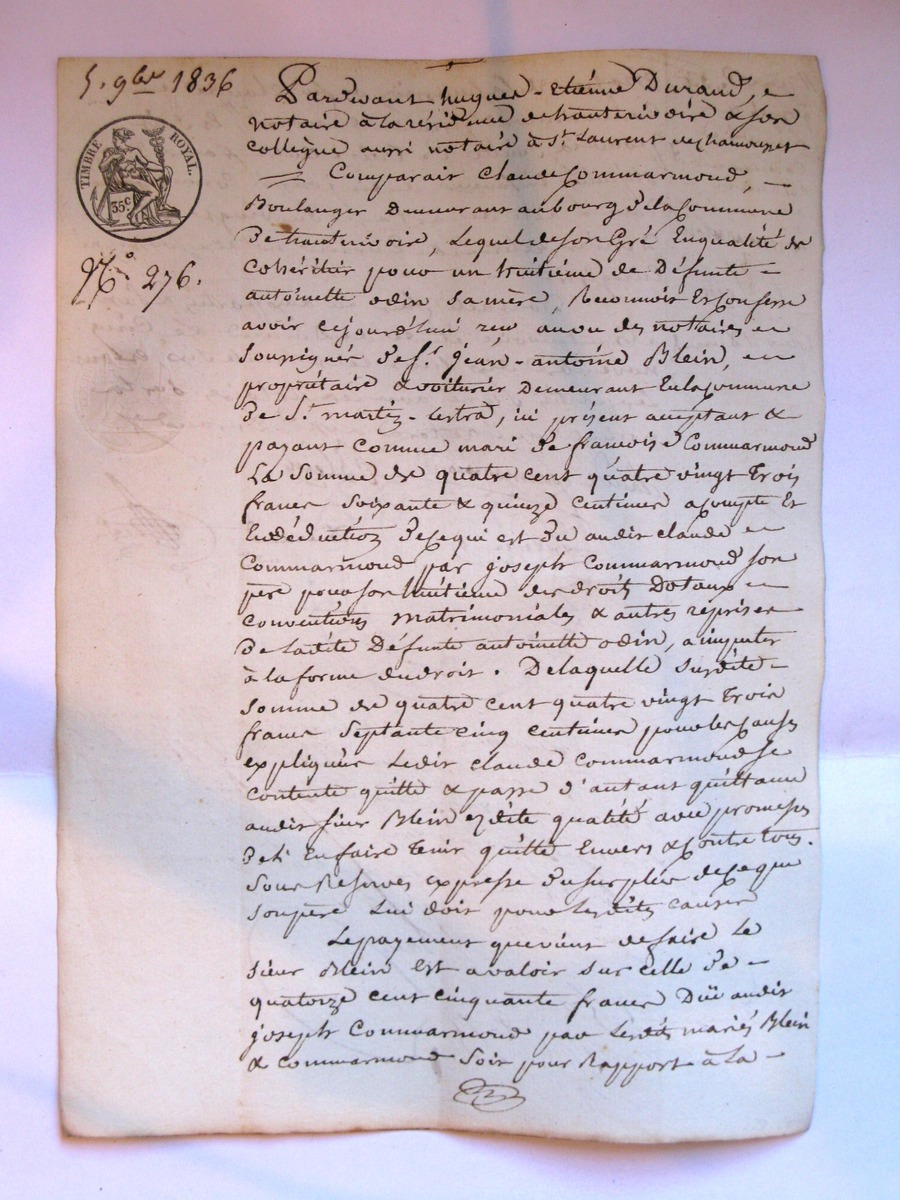 5. 9bre 1836
TIMBRE ROYAL.
35c
No 276.
Pardevant hugues-etiénne Durand,
notaire à la résidence de hauterivoire & son
collegue aussi notaire à St. Laurent de chamousset
Comparait Claude Commarmond,
Boulanger Demeurant au bourg De la Commune
De hauterivoire, Lequel de son Gré En qualité de
cohéritier pour un huitième de Défunte
antoinette odin sa mère, Reconnoit Et Confesse
avoir cejourd'hui reçu au vu des notaires
soussignés De Sr. jean-antoine Blein,
propriétaire & voiturier Demeurant En la Commune
De St. martin-Lestra, ici présent acceptant &
payant comme mari De francoise Commarmond
La Somme de quatre cent quatre vingt trois
francs soixante & quinze centimes acompte Et
En déduction De ce qui est Du audit claude
Commarmond par joseph Commarmond son
père pour son huitième des droits Dotaux
conventions matrimoniales & autres reprises
De ladite Défunte antoinette odin, a imputer
à la forme du droit. De laquelle susdite
somme de quatre cent quatre vingt trois
francs Septante cinq centimes pour les causes
expliquées Ledit claude Commarmond se
contente quitte & passe d'autant quittance
audit sieur Blein ezdite qualité avec promesses
De l'En faire tenir quitte Envers & contre tous.
Sous Reserves expresse Du surplus de ce que
son père Lui doit pour lesdites causes
Le payement que vient de faire Le
sieur Blein Est a valoir sur celle De
quatorze cent cinquante francs Düe audit
joseph Commarmond par Lesdits mariés Blein
& commarmond Soit pour Rapport à La